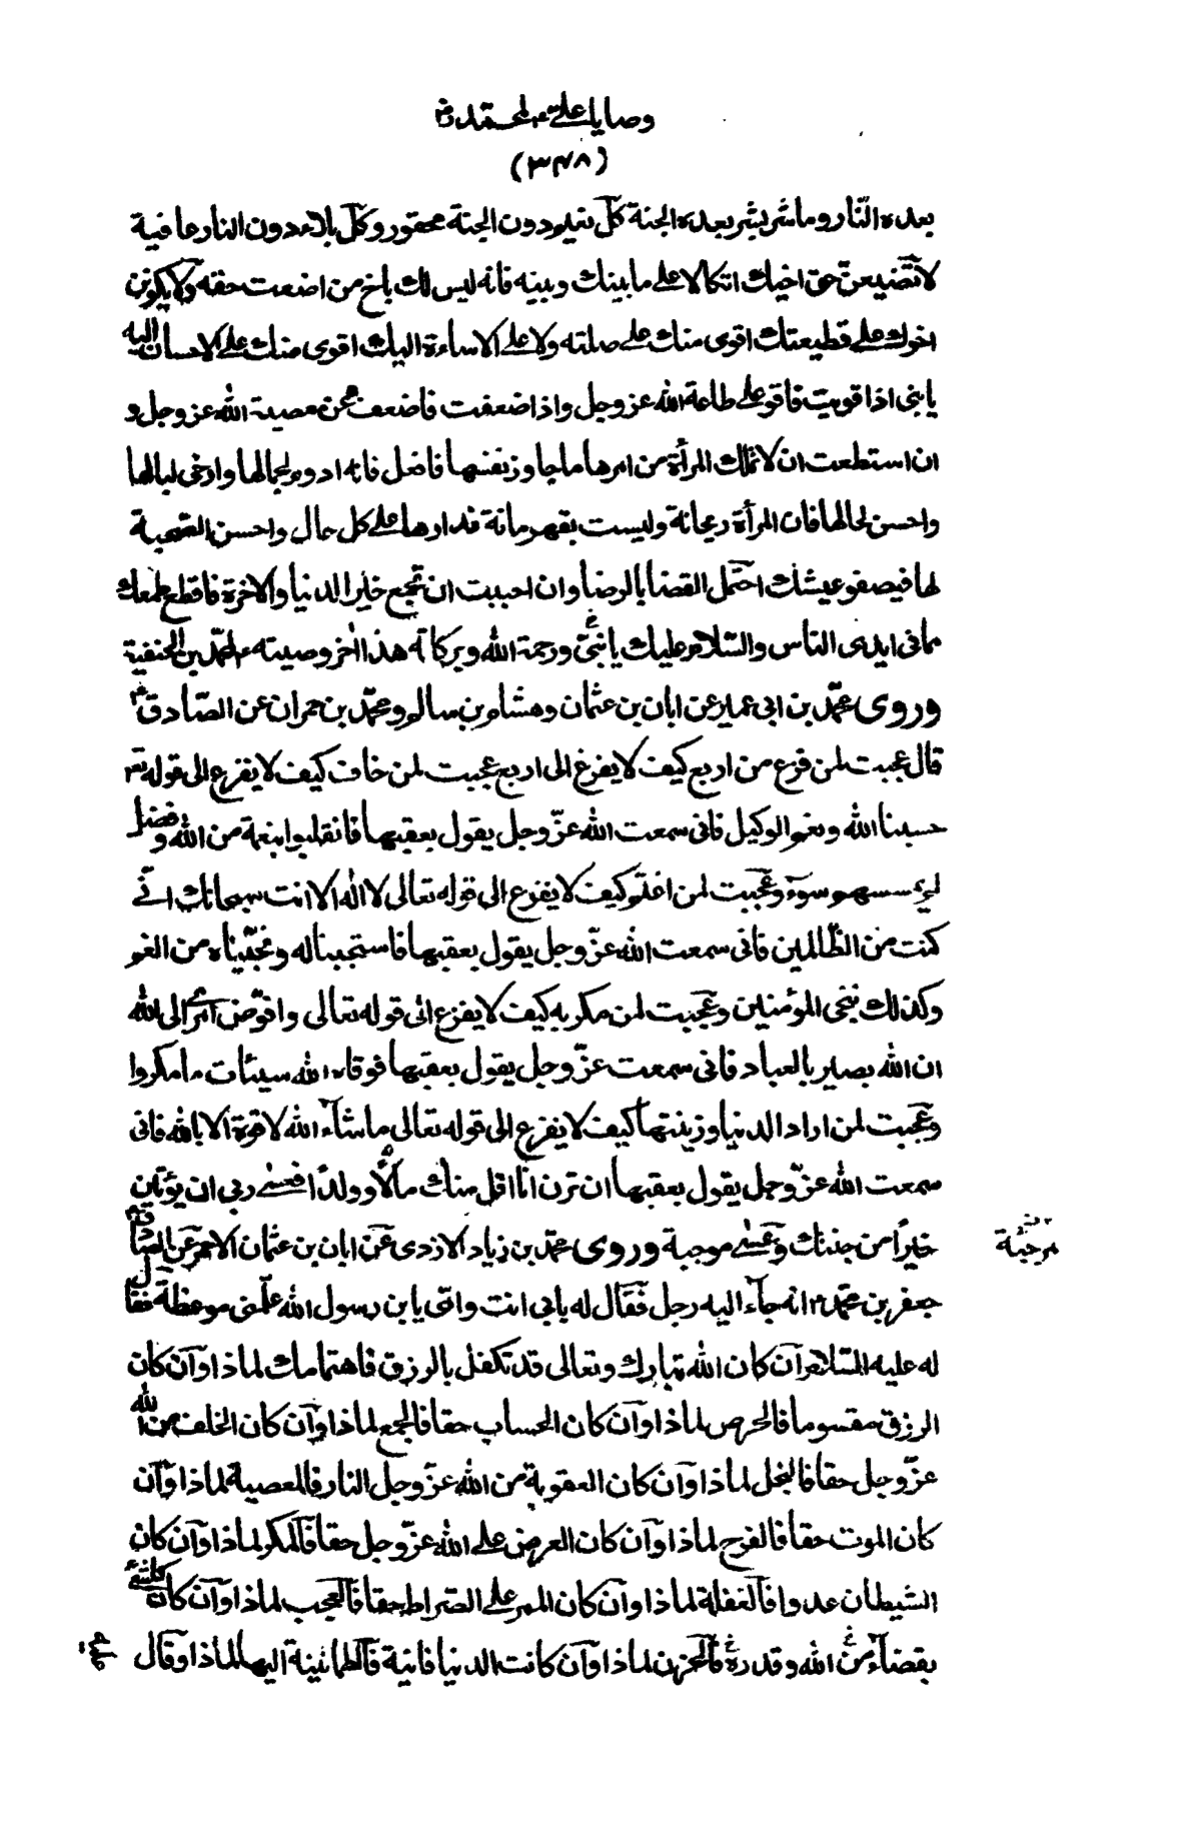 وصاياء علىّ ع لمحمد رض
(۳۴۸)
بعده النّار وما شر بشر بعده الجنة كلّ نعيم دون الجنة محقور وكلّ بلاء دون النار عافية
لا تضيعنّ حق اخيك اتكالا على ما بينك وبينه فانه ليس لك باخ من اضعت حقه ولا يكونن
اخوك على قطيعتك اقوى منك على صلته ولا على الاساءة اليك اقوى منك على الاحسان اليه
يا بنى اذا قويت فاقو على طاعة الله عز وجل واذا ضعفت فاضعف عن معصية الله عز وجل و
ان استطعت ان لا تملك المرأة من امرها ما جاوز نفسها فافعل فانه ادوم لجمالها وارخى لبالها
واحسن لحالها فان المرأة ريحانة وليست بقهرمانة فدارها على كل حال واحسن الصحبة
لها فيصفو عيشك احتمل القضا بالرضا وان احببت ان تجمع خير الدنيا والاخرة فاقطع طمعك
مما فى ايدى الناس والسّلام عليك يا بنىّ ورحمة الله وبركاته هذا اخر وصيته ع لمحمّد بن الحنفية
وروى محمّد بن ابى عمير عن ابان بن عثمان وهشام بن سالم ومحمّد بن حمران عن الصّادق ع
قال عجبت لمن فزع من اربع كيف لا يفزع الى اربع عجبت لمن خاف كيف لا يفزع الى قوله تع
حسبنا الله ونعم الوكيل فانى سمعت الله عزّ وجل يقول بعقبها فانقلبوا بنعمة من الله وفضل
لم يمسسهم سوء وعجبت لمن اغتم كيف لا يفزع الى قوله تعالى لا اله الا انت سبحانك انّى
كنت من الظّالمين فانى سمعت الله عزّ وجل يقول بعقبها فاستجبنا له ونجّيناه من الغم
وكذلك ننجى المؤمنين وعجبت لمن مكر به كيف لا يفزع الى قوله تعالى وافوّض امرى الى الله
ان الله بصير بالعباد فانى سمعت عزّ وجل يقول بعقبها فوقاه الله سيئات ما مكروا
وعجبت لمن اراد الدنيا وزينتها كيف لا يفزع الى قوله تعالى ما شاء الله لا قوة الا بالله فانى
سمعت الله عزّ وجل يقول بعقبها ان ترن انا اقل منك مالًا وولدًا فعسى ربى ان يؤتين
خيرًا من جنتك وعسى موجبة وروى محمّد بن زياد الازدى عن ابان بن عثمان الاحمر عن الصّادق
جعفر بن محمّد ع انه جاء اليه رجل فقال له بابى انت وامّى يا بن رسول الله علّمنى موعظة فقال
له عليه السّلام ان كان الله تبارك وتعالى قد تكفل بالرزق فاهتمامك لماذا وان كان
الرزق مقسوما فالحرص لماذا وان كان الحساب حقا فالجمع لماذا وان كان الخلف من الله
عزّ وجل حقا فالبخل لماذا وان كان العقوبة من الله عزّ وجلّ النار فالمعصية لماذا وان
كان الموت حقا فالفرح لماذا وان كان العرض على الله عزّ وجل حقا فالمكر لماذا وان كان
الشيطان عدوا فالغفلة لماذا وان كان الممر على الصّراط حقا فالعجب لماذا وان كان كلشئ
بقضاء من الله وقدره فالحزن لماذا وان كانت الدنيا فانية فالطمانينة اليها لماذا وقال